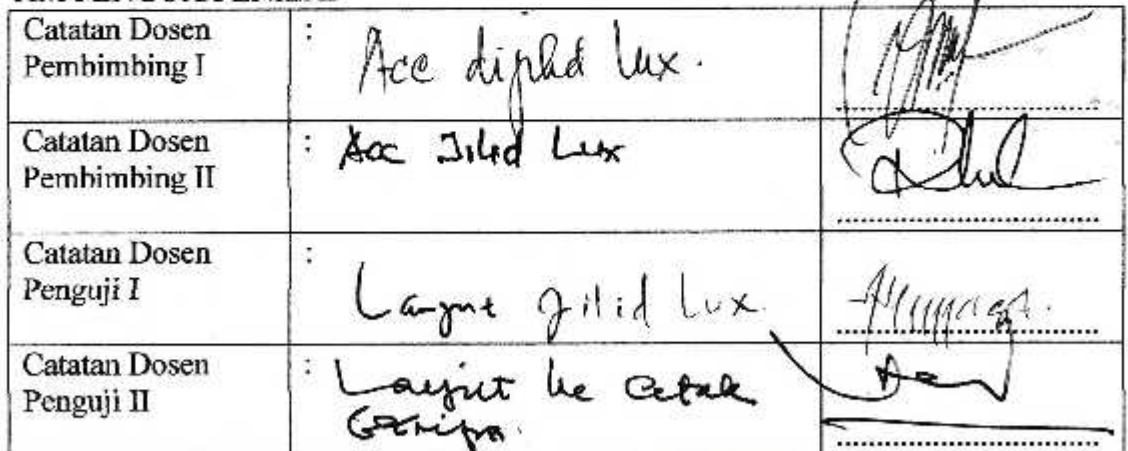 Catatan Dosen
Pembimbing I
: Acc dijilid lux.
Catatan Dosen
Pembimbing II
: Acc Jilid Lux
Catatan Dosen
Penguji I
: Lanjut Jilid Lux.
Catatan Dosen
Penguji II
: Lanjut ke Cetak